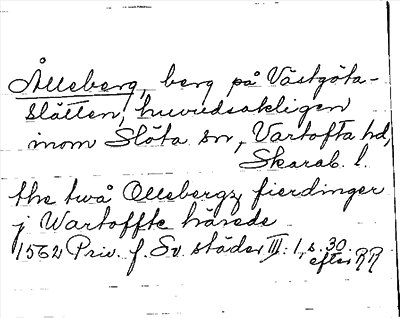 Ålleberg, berg på Västgöta-
slätten, huvudsakligen
inom Slöta sn, Vartofta hd,
Skarab. l.
the twå Ollebergz fierdinger
j Wartoffte härede
1562 Priv. f. Sv. städer III: 1, s. 30.
efter RR